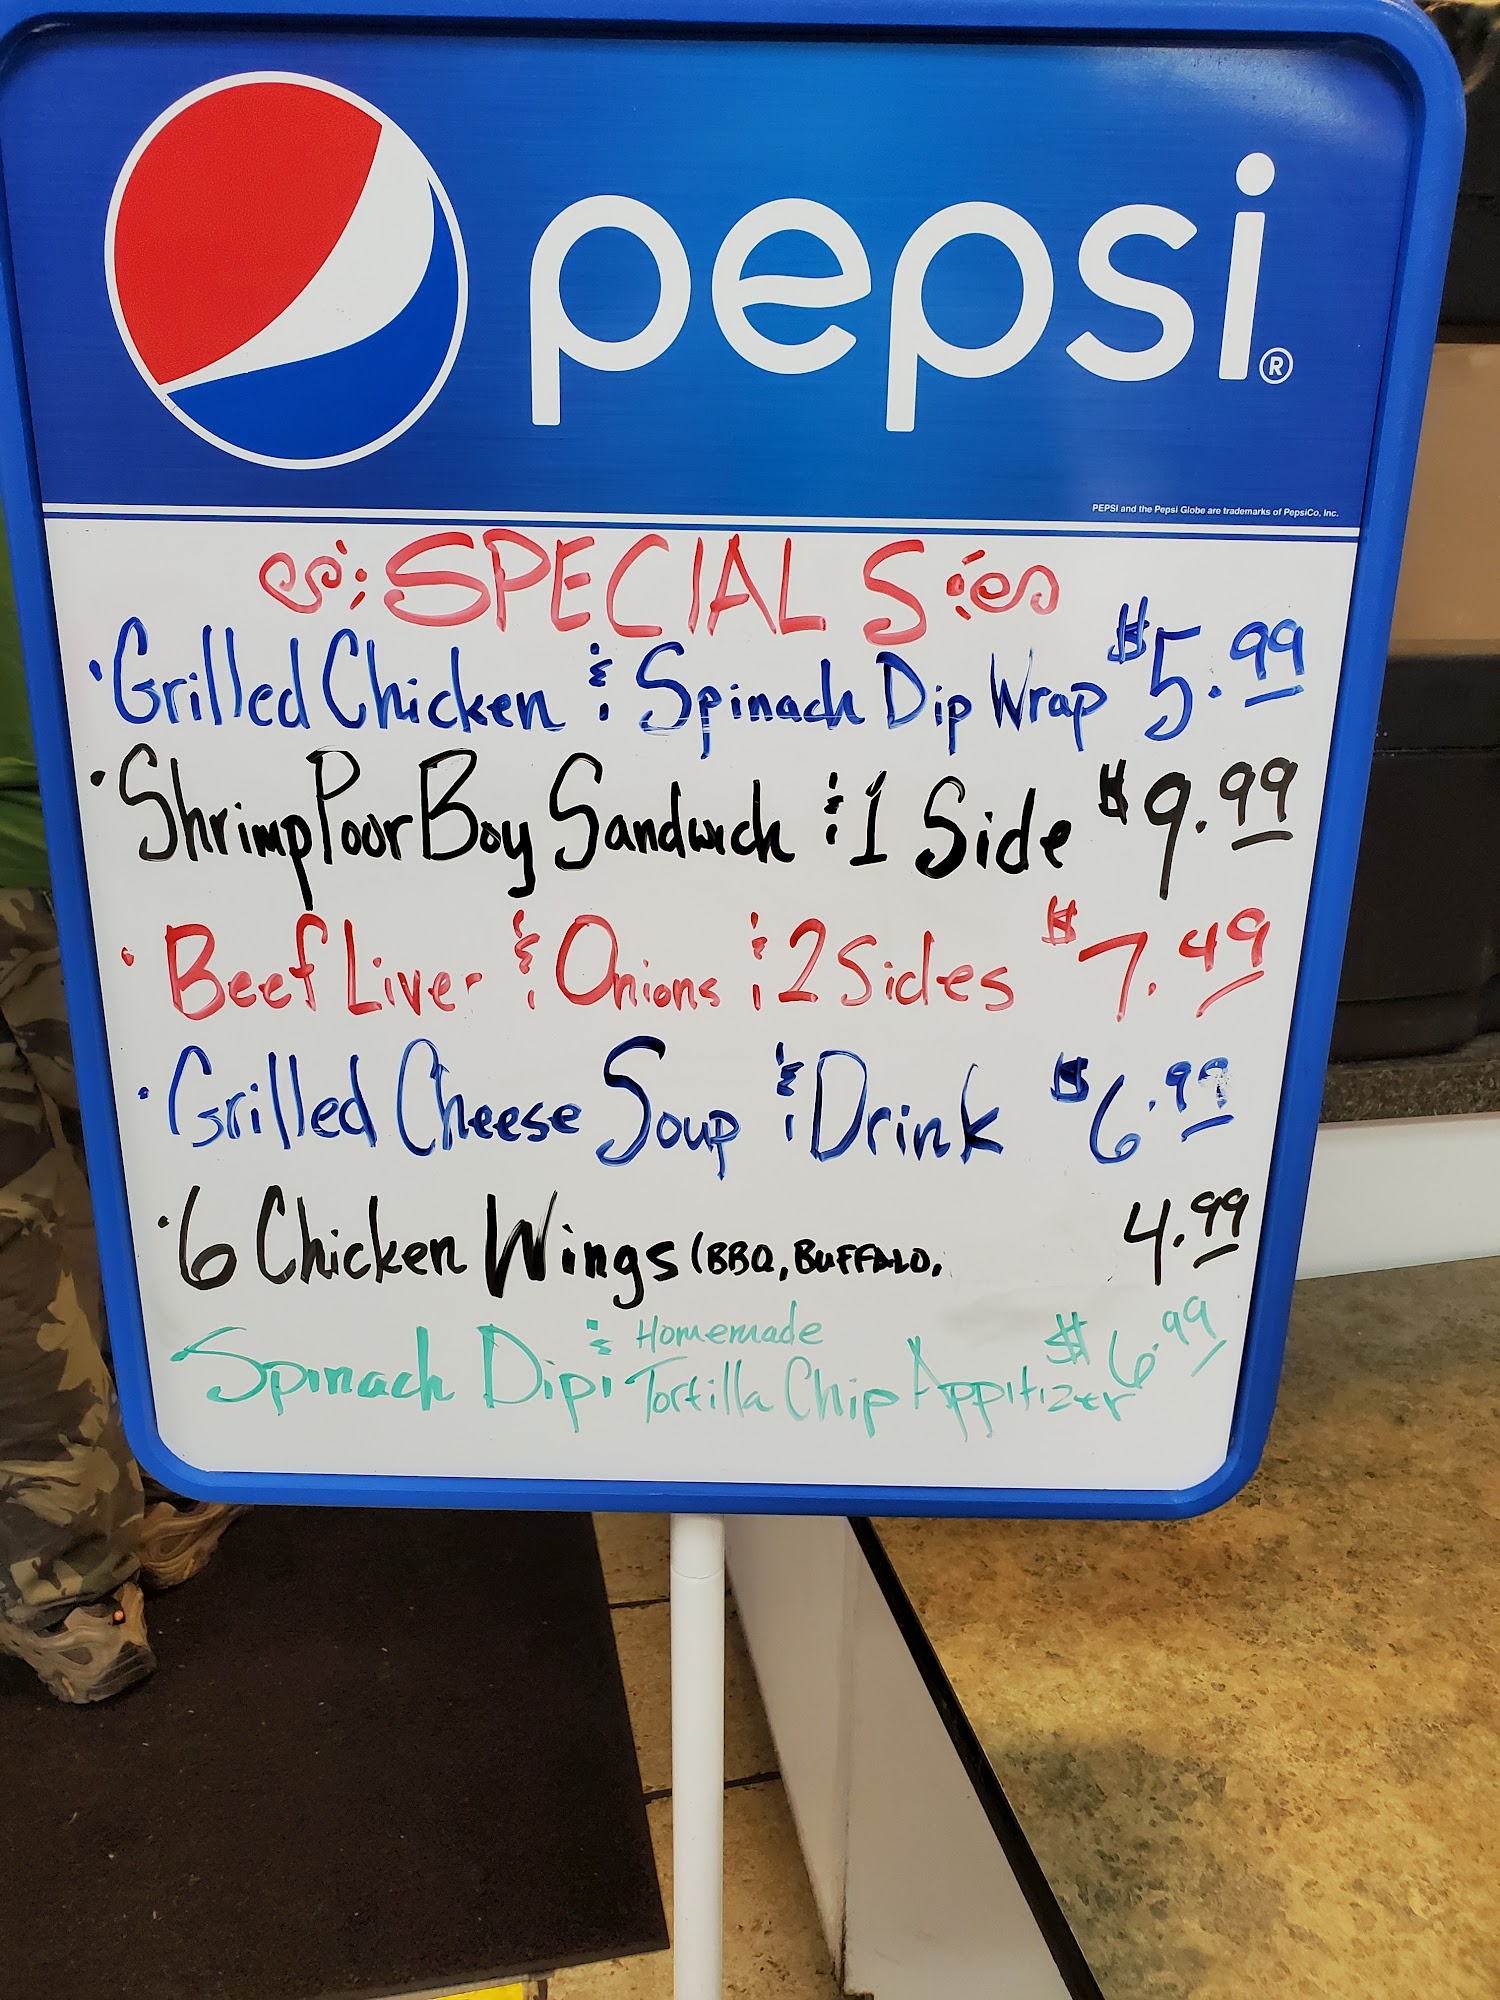 pepsi®
PEPSI and the Pepsi Globe are trademarks of PepsiCo, Inc.
SPECIALS
• Grilled Chicken & Spinach Dip Wrap $5.99
• Shrimp Poor Boy Sandwich & 1 Side $9.99
• Beef Liver & Onions & 2 Sides $7.49
• Grilled Cheese Soup & Drink $6.99
• 6 Chicken Wings (BBQ, BUFFALO, 4.99
Spinach Dip & Homemade
Tortilla Chip Appitizer $6.99